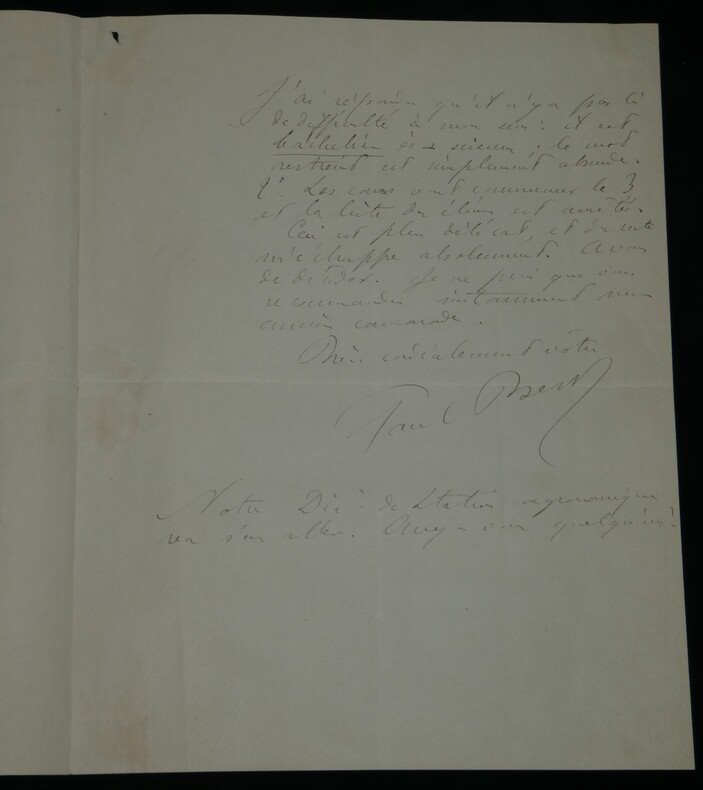 J'ai répondu qu'il n'y a pas là
de difficulté à mon sens : il est
bachelier ès-sciences ; le mot
restreint est simplement absurde.
2° Les cours ont commencé le 3
et la liste des élèves est arrêtée.
Ceci est plus délicat, et du reste
m'échappe absolument. A vous
de décider. Je ne puis que vous
recommander instamment mon
ancien camarade.
Bien cordialement vôtre
Paul Bert
Notre Dir. de Station agronomique
va s'en aller. Avez-vous quelqu'un ?